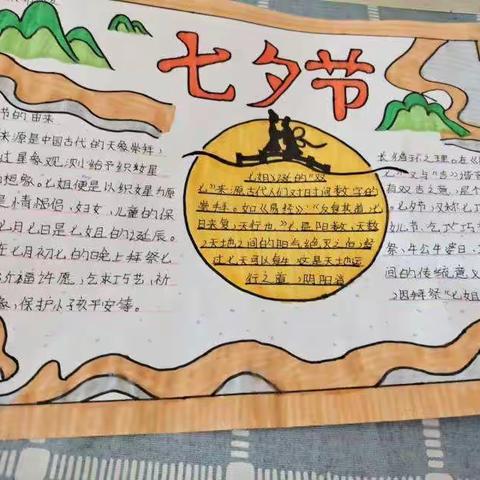 七夕节
节的由来
来源是中国古代的天象崇拜，
七姐便是以织女星为原
是情侣，妇女，儿童的保
七月七日是七姐的诞辰。
在七月初七的晚上拜祭七
祈福许愿，乞求巧艺，祈
保护小孩平安等。
七姐诞的"双
七"来源古代人们对时间数字的
崇拜，如《易经》："反复其道，七
日来复，天行也。"七是阳数，天数
天地之间的阳气绝灭之后，经
过七天可以复生，这是天地运
行之道，阴阳消
长循环之理。在
又与"吉"谐音
有双吉之意，是个
七夕节，又称七巧
女儿节，乞巧
祭，牛公牛婆日，
间的传统意义
因拜祭"七姐